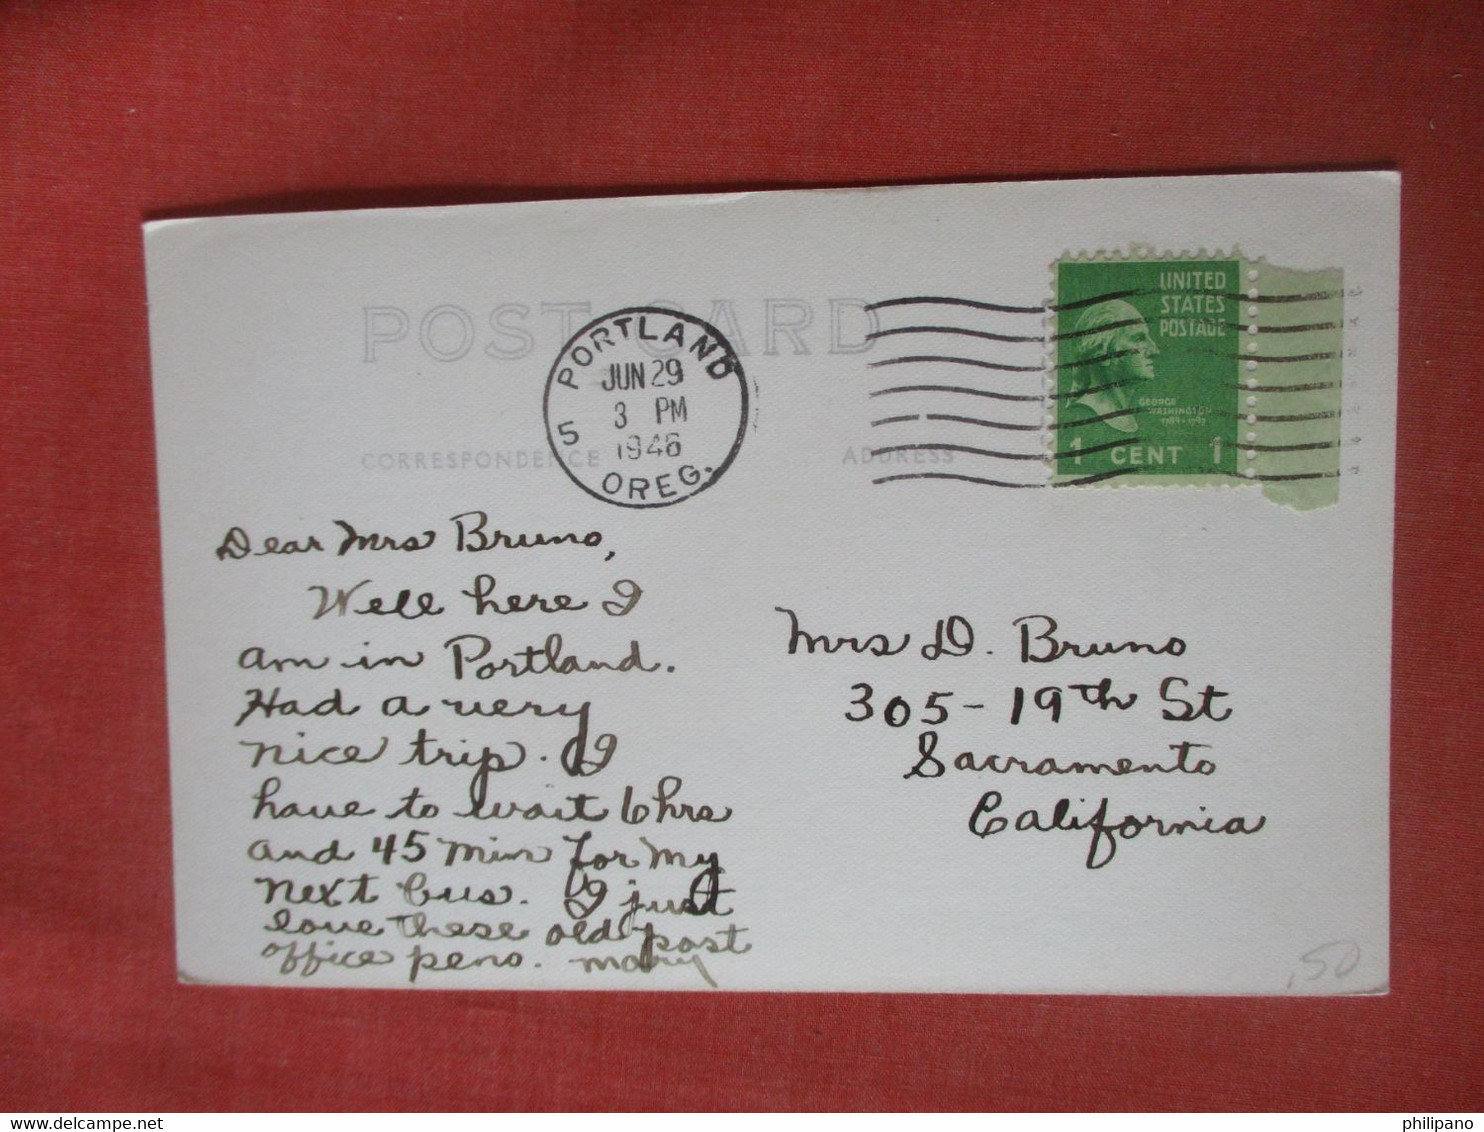 POST CARD
PORTLAND
JUN 29
3 PM
1946
5
OREG.
UNITED
STATES
POSTAGE
GEORGE
WASHINGTON
1 CENT 1
CORRESPONDENCE
ADDRESS
Dear Mrs Bruno,
Well here I
am in Portland.
Had a very
nice trip. I
have to wait 6 hrs
and 45 min for my
next bus. I just
love these old post
office pens. Mary
Mrs D. Bruno
305-19th St
Sacramento
California
.50
www.delcampe.net
philipano